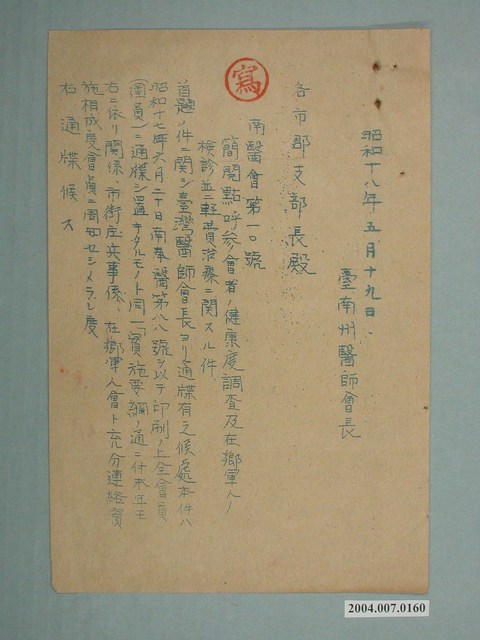 寫
昭和十八年五月十九日、
臺南州醫師會長
各市郡支部長殿
南醫會第一〇號
簡閱點呼參會者ノ健康度調査及在鄉軍人ノ
檢診並ニ輕費治療ニ關スル件
首題ノ件ニ關シ臺灣醫師會長ヨリ通牒有之候處本件ハ
昭和十七年六月二十日南奉醫第八八號ヲ以テ印刷ノ上全會員
ニ通牒シ置キタルモノト同一實施要綱ノ通ニ付本年モ
右ニ依リ關係市街庄兵事係、在鄉軍人會ト充分連絡實
施相成度會員ニ周知セシメラレ度
右通牒候ス
2004.007.0160